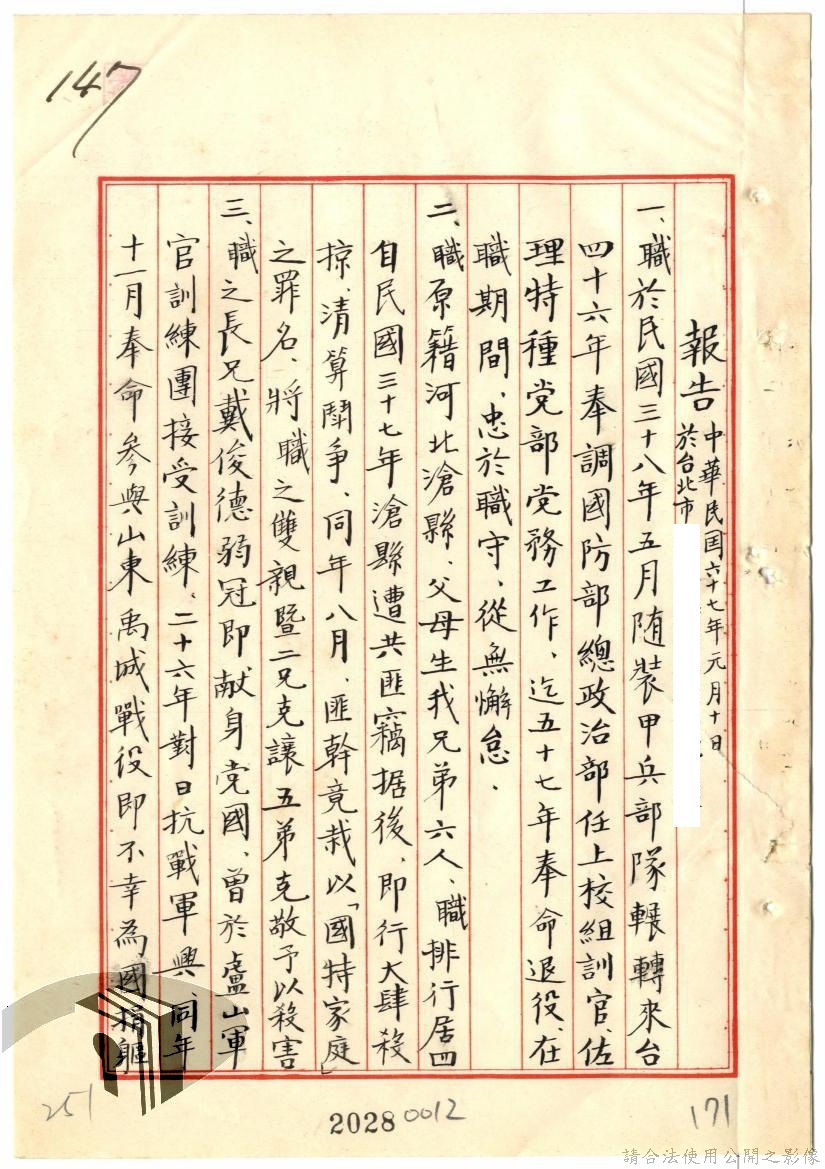 147
報告 中華民国六十七年元月十日
於台北市
一、職於民國三十八年五月随裝甲兵部隊輾轉來台
四十六年奉調國防部總政治部任上校組訓官、佐
理特種党部党務工作、迄五十七年奉命退役、在
職期間、忠於職守、從無懈怠．
二、職原籍河北滄縣、父母生我兄弟六人、職排行居四
自民國三十七年滄縣遭共匪竊据後、即行大肆殺
掠、清算鬪争、同年八月、匪幹竟栽以「國特家庭」
之罪名、將職之雙親暨二兄克讓五弟克敬予以殺害
三、職之長兄戴俊德弱冠即献身党國、曾於盧山軍
官訓練團接受訓練、二十六年對日抗戰軍興、同年
十一月奉命参與山東禹城戰役即不幸為國捐軀
251
2028 0012
171
請合法使用公開之影像